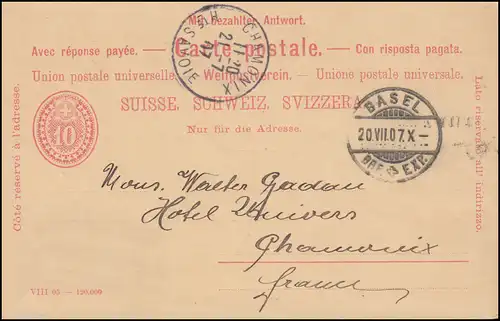 Mit bezahlter Antwort.
Avec réponse payée. — Carte postale. — Con risposta pagata.
Union postale universelle. — Weltpostverein. — Unione postale universale.
SUISSE. SCHWEIZ. SVIZZERA.
Nur für die Adresse.
Côté réservé à l'adresse.
10
Lato riservato all' indirizzo.
CHAMONIX
Hte SAVOIE
BASEL
20.VII.07.X-
BRF. EXP.
Mons. Walter Gadau
Hotel Univers
Chamonix
france
VIII 05 — 120,000